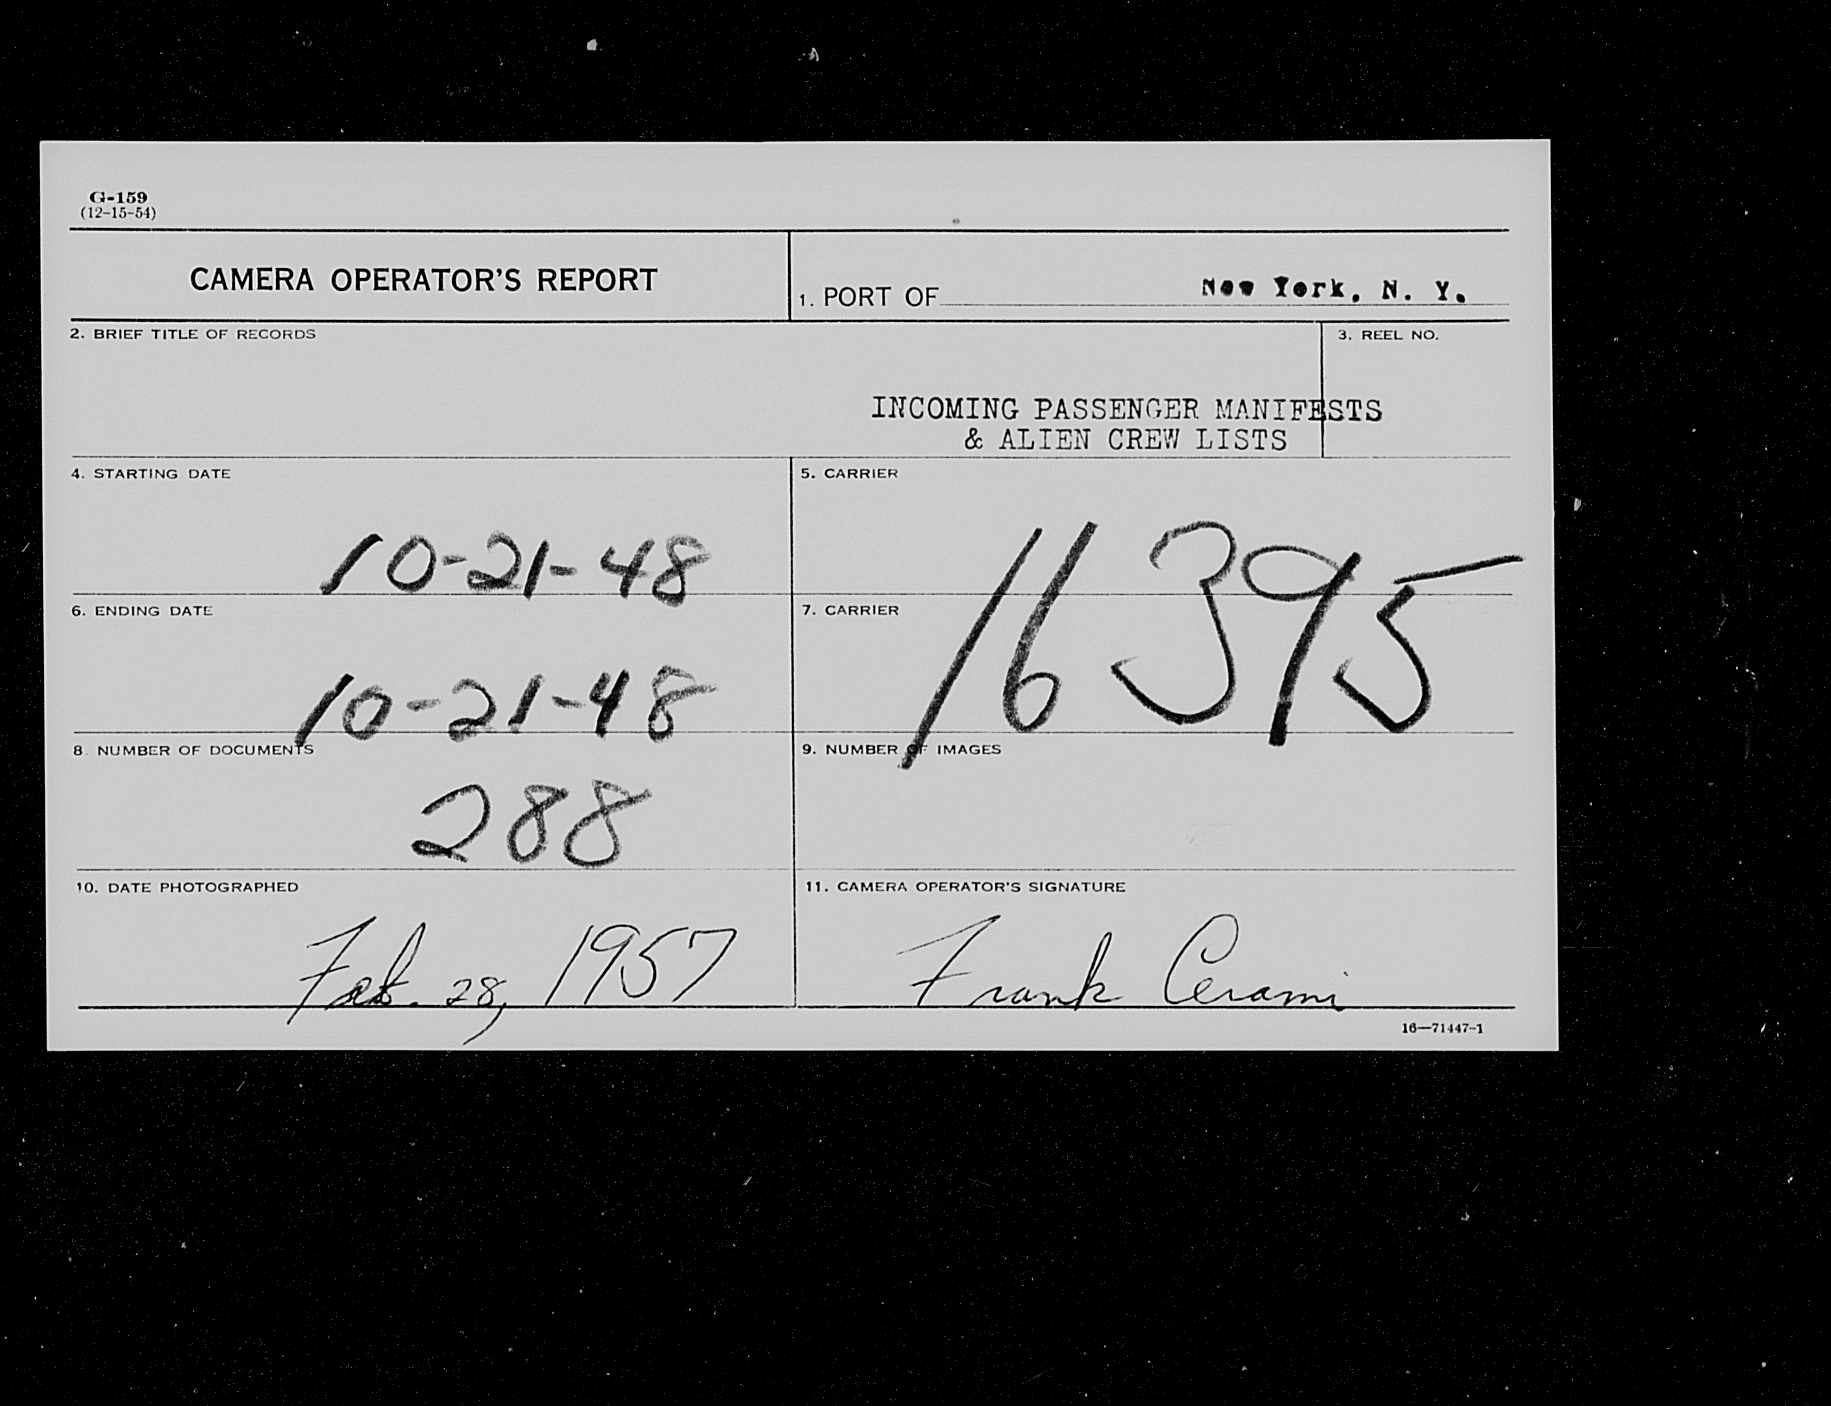 G-159
(12-15-54)
CAMERA OPERATOR'S REPORT
1. PORT OF New York, N. Y.
2. BRIEF TITLE OF RECORDS
3. REEL NO.
INCOMING PASSENGER MANIFESTS
& ALIEN CREW LISTS
4. STARTING DATE
10-21-48
5. CARRIER
16395
6. ENDING DATE
10-21-48
7. CARRIER
8. NUMBER OF DOCUMENTS
288
9. NUMBER OF IMAGES
10. DATE PHOTOGRAPHED
Feb. 28, 1957
11. CAMERA OPERATOR'S SIGNATURE
Frank Cerami
16—71447-1